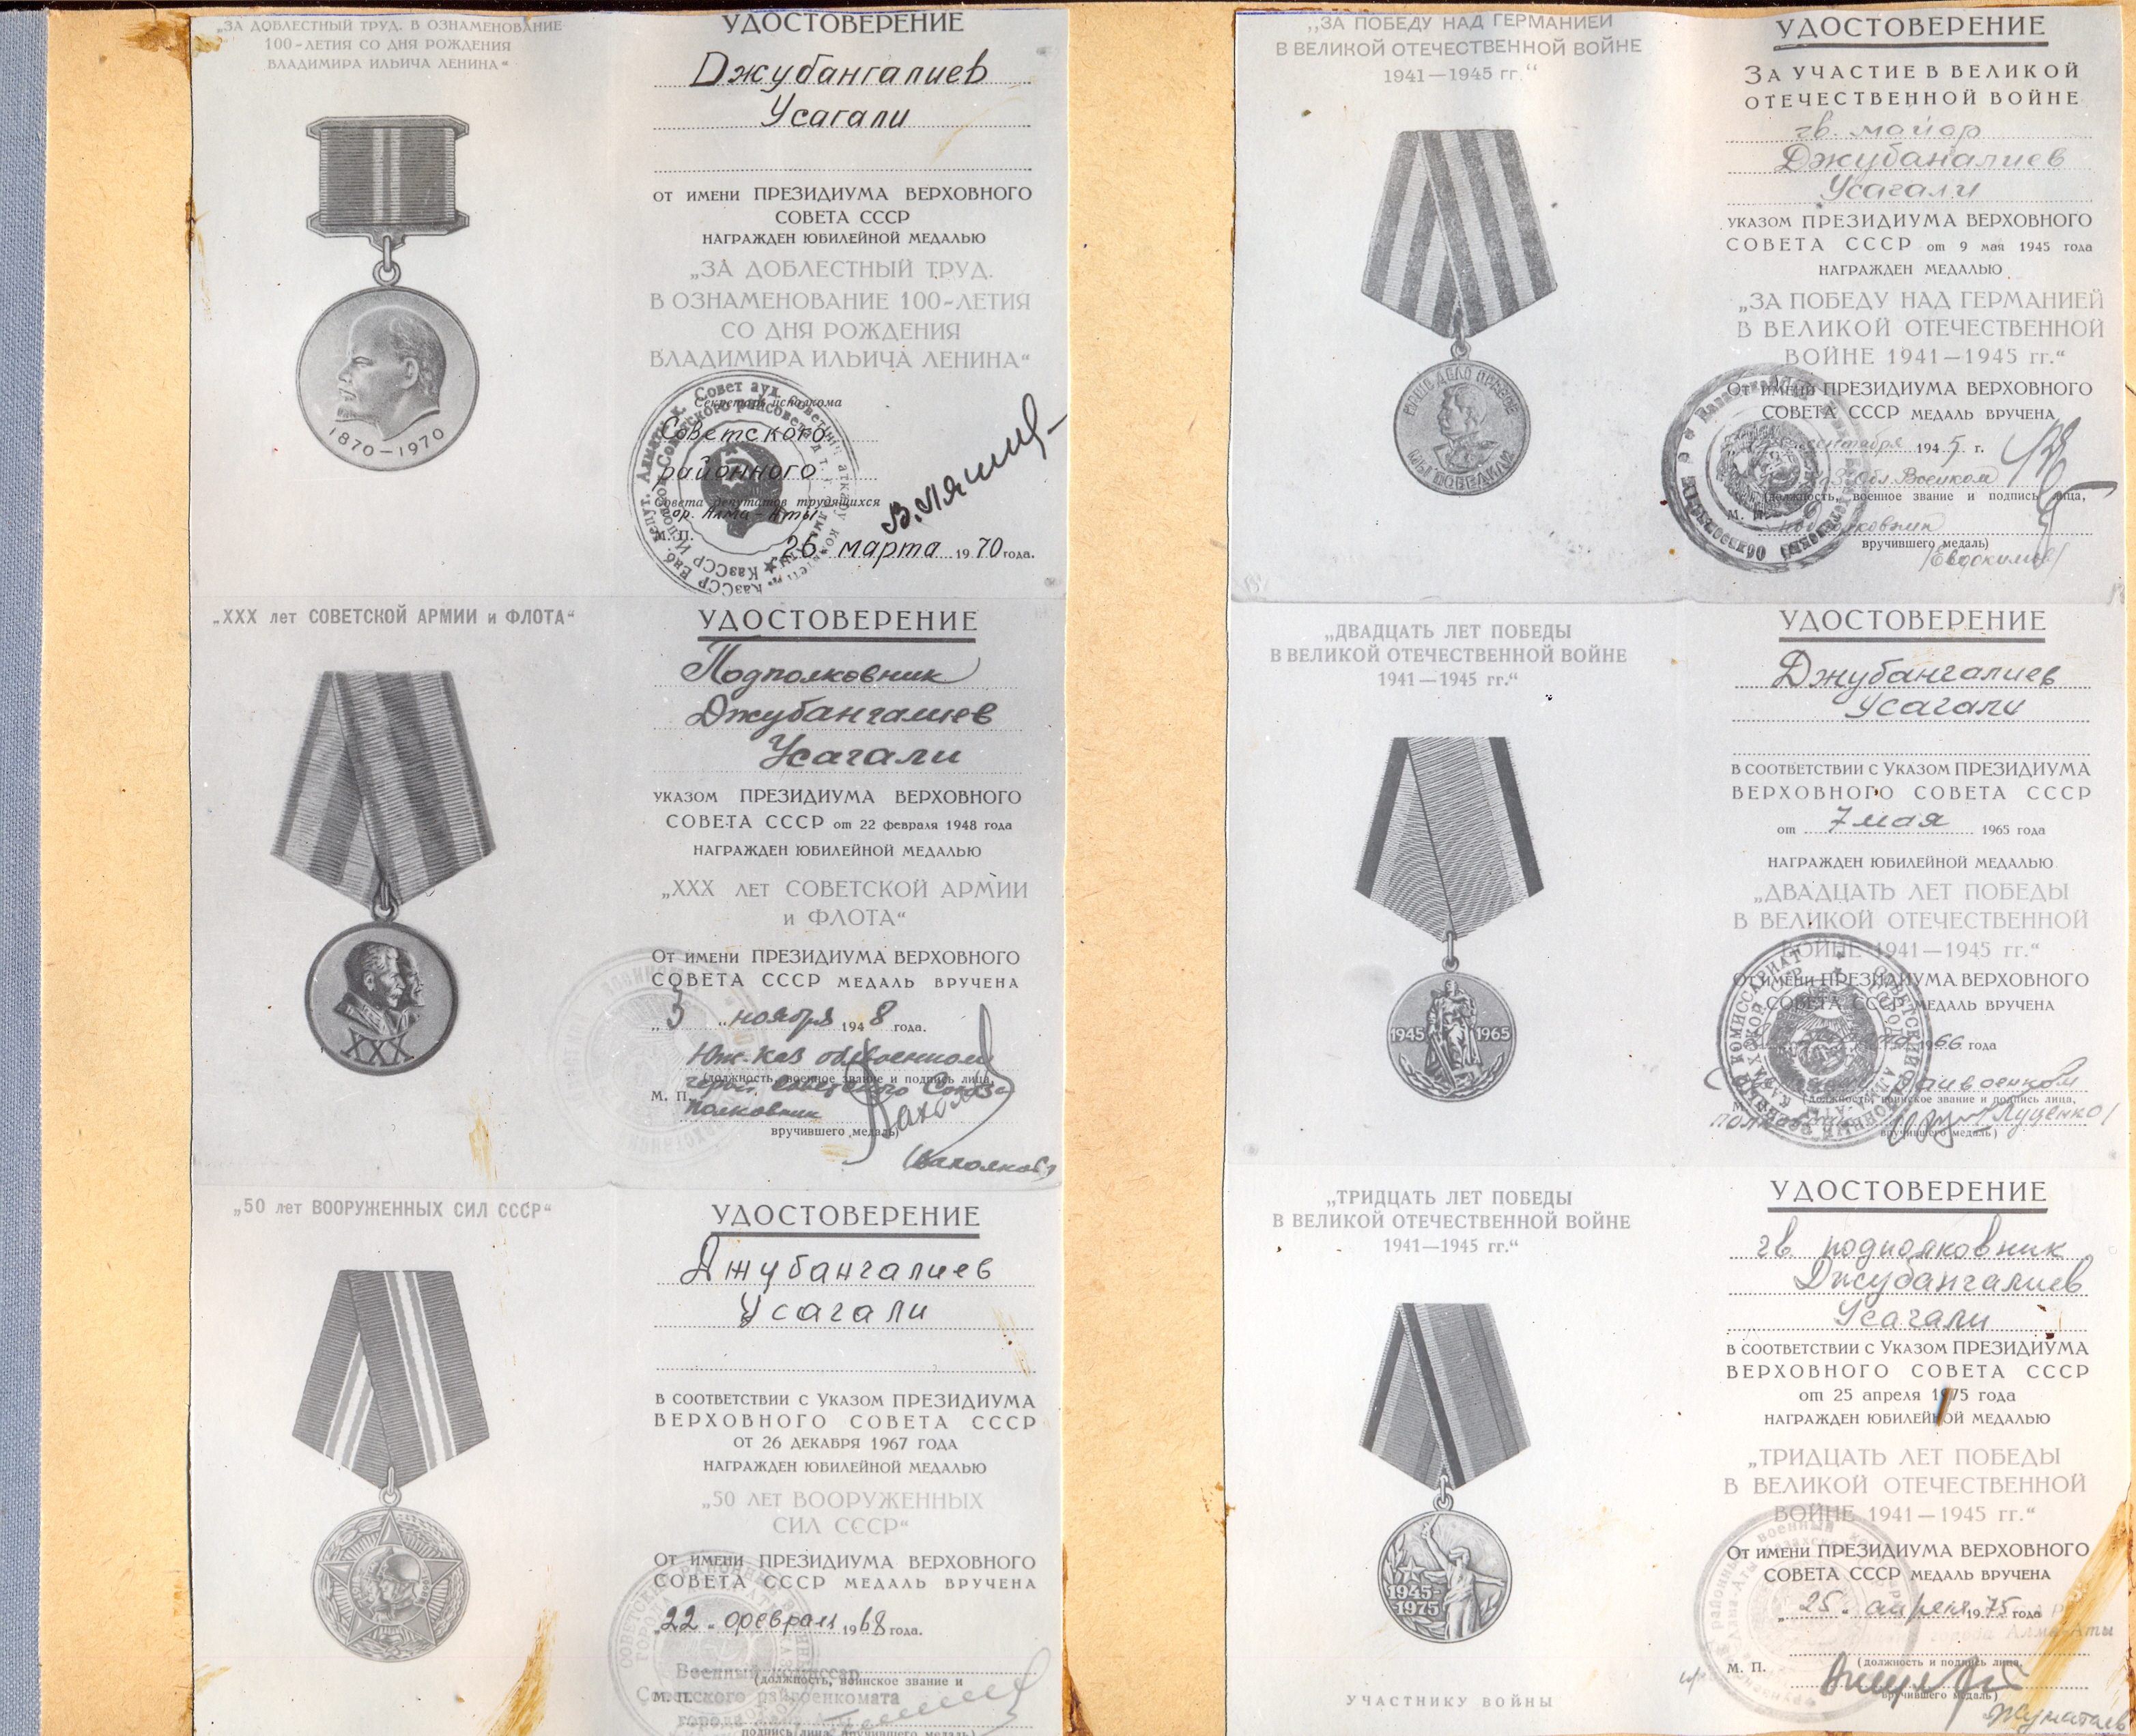 „ЗА ДОБЛЕСТНЫЙ ТРУД. В ОЗНАМЕНОВАНИЕ
100-ЛЕТИЯ СО ДНЯ РОЖДЕНИЯ
ВЛАДИМИРА ИЛЬИЧА ЛЕНИНА“
1870-1970
УДОСТОВЕРЕНИЕ
Джубангалиев
Усагали
от имени ПРЕЗИДИУМА ВЕРХОВНОГО
СОВЕТА СССР
НАГРАЖДЕН ЮБИЛЕЙНОЙ МЕДАЛЬЮ
„ЗА ДОБЛЕСТНЫЙ ТРУД.
В ОЗНАМЕНОВАНИЕ 100-ЛЕТИЯ
СО ДНЯ РОЖДЕНИЯ
ВЛАДИМИРА ИЛЬИЧА ЛЕНИНА“
Секретарь исполкома
Советского
районного
Совета депутатов трудящихся
гор. Алма-Аты
М. П.
26 марта 1970 года.
„XXX лет СОВЕТСКОЙ АРМИИ и ФЛОТА“
XXX
УДОСТОВЕРЕНИЕ
Подполковник
Джубангалиев
Усагали
УКАЗОМ ПРЕЗИДИУМА ВЕРХОВНОГО
СОВЕТА СССР от 22 февраля 1948 года
НАГРАЖДЕН ЮБИЛЕЙНОЙ МЕДАЛЬЮ
„XXX ЛЕТ СОВЕТСКОЙ АРМИИ
и ФЛОТА“
От имени ПРЕЗИДИУМА ВЕРХОВНОГО
СОВЕТА СССР МЕДАЛЬ ВРУЧЕНА
„3 „ ноября 1948 года.
Юж-Каз облвоенком
(должность, военное звание и подпись лица,
герой Советского Союза
М. П. полковник
вручившего медаль)
„50 лет ВООРУЖЕННЫХ СИЛ СССР“
УДОСТОВЕРЕНИЕ
Джубангалиев
Усагали
В СООТВЕТСТВИИ С УКАЗОМ ПРЕЗИДИУМА
ВЕРХОВНОГО СОВЕТА СССР
ОТ 26 ДЕКАБРЯ 1967 ГОДА
НАГРАЖДЕН ЮБИЛЕЙНОЙ МЕДАЛЬЮ
„50 ЛЕТ ВООРУЖЕННЫХ
СИЛ СССР“
От имени ПРЕЗИДИУМА ВЕРХОВНОГО
СОВЕТА СССР МЕДАЛЬ ВРУЧЕНА
„22„ февраля 1968 года.
Военный комиссар
(должность, воинское звание и
М. П. Советского райвоенкомата
города
подпись лица, вручившего медаль)
„ЗА ПОБЕДУ НАД ГЕРМАНИЕЙ
В ВЕЛИКОЙ ОТЕЧЕСТВЕННОЙ ВОЙНЕ
1941—1945 гг.“
НАШЕ ДЕЛО ПРАВОЕ
МЫ ПОБЕДИЛИ
УДОСТОВЕРЕНИЕ
ЗА УЧАСТИЕ В ВЕЛИКОЙ
ОТЕЧЕСТВЕННОЙ ВОЙНЕ
гв. майор
Джубаналиев
Усагали
УКАЗОМ ПРЕЗИДИУМА ВЕРХОВНОГО
СОВЕТА СССР от 9 мая 1945 года
НАГРАЖДЕН МЕДАЛЬЮ
„ЗА ПОБЕДУ НАД ГЕРМАНИЕЙ
В ВЕЛИКОЙ ОТЕЧЕСТВЕННОЙ
ВОЙНЕ 1941—1945 гг.“
От имени ПРЕЗИДИУМА ВЕРХОВНОГО
СОВЕТА СССР МЕДАЛЬ ВРУЧЕНА
сентября 1945 г.
Обл. Военком
(должность, военное звание и подпись лица,
М. П. подполковник
вручившего медаль)
/Евдокимов/
„ДВАДЦАТЬ ЛЕТ ПОБЕДЫ
В ВЕЛИКОЙ ОТЕЧЕСТВЕННОЙ ВОЙНЕ
1941—1945 гг.“
1945 1965
УДОСТОВЕРЕНИЕ
Джубангалиев
Усагали
В СООТВЕТСТВИИ С УКАЗОМ ПРЕЗИДИУМА
ВЕРХОВНОГО СОВЕТА СССР
от 7 мая 1965 года
НАГРАЖДЕН ЮБИЛЕЙНОЙ МЕДАЛЬЮ
„ДВАДЦАТЬ ЛЕТ ПОБЕДЫ
В ВЕЛИКОЙ ОТЕЧЕСТВЕННОЙ
ВОЙНЕ 1941—1945 гг.“
От имени ПРЕЗИДИУМА ВЕРХОВНОГО
СОВЕТА СССР МЕДАЛЬ ВРУЧЕНА
1966 года
райвоенком
(должность, воинское звание и подпись лица,
полковник /Луценко/
вручившего медаль)
„ТРИДЦАТЬ ЛЕТ ПОБЕДЫ
В ВЕЛИКОЙ ОТЕЧЕСТВЕННОЙ ВОЙНЕ
1941—1945 гг.“
1945-
-1975
УЧАСТНИКУ ВОЙНЫ
УДОСТОВЕРЕНИЕ
гв. подполковник
Джубангалиев
Усагали
В СООТВЕТСТВИИ С УКАЗОМ ПРЕЗИДИУМА
ВЕРХОВНОГО СОВЕТА СССР
от 25 апреля 1975 года
НАГРАЖДЕН ЮБИЛЕЙНОЙ МЕДАЛЬЮ
„ТРИДЦАТЬ ЛЕТ ПОБЕДЫ
В ВЕЛИКОЙ ОТЕЧЕСТВЕННОЙ
ВОЙНЕ 1941—1945 гг.“
От имени ПРЕЗИДИУМА ВЕРХОВНОГО
СОВЕТА СССР МЕДАЛЬ ВРУЧЕНА
„25„ апреля 1975 года
города Алма-Аты
М. П. (должность и подпись лица,
вручившего медаль)